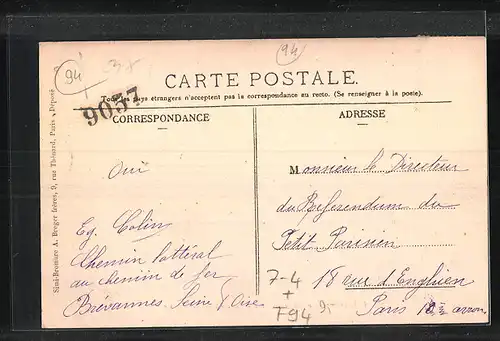 94
94
CARTE POSTALE.
Tous les pays étrangers n'acceptent pas la correspondance au recto. (Se renseigner à la poste).
9057
CORRESPONDANCE
ADRESSE
Simi-Bromure A. Breger frères, 9, rue Thénard, Paris Déposé
Oui
Eg. Colin
Chemin lattéral
au chemin de fer
Brévannes Seine & Oise
Monsieur le Directeur
du Referendum du
Petit Parisien
18 rue d'Enghien
Paris
7-4
+
F94